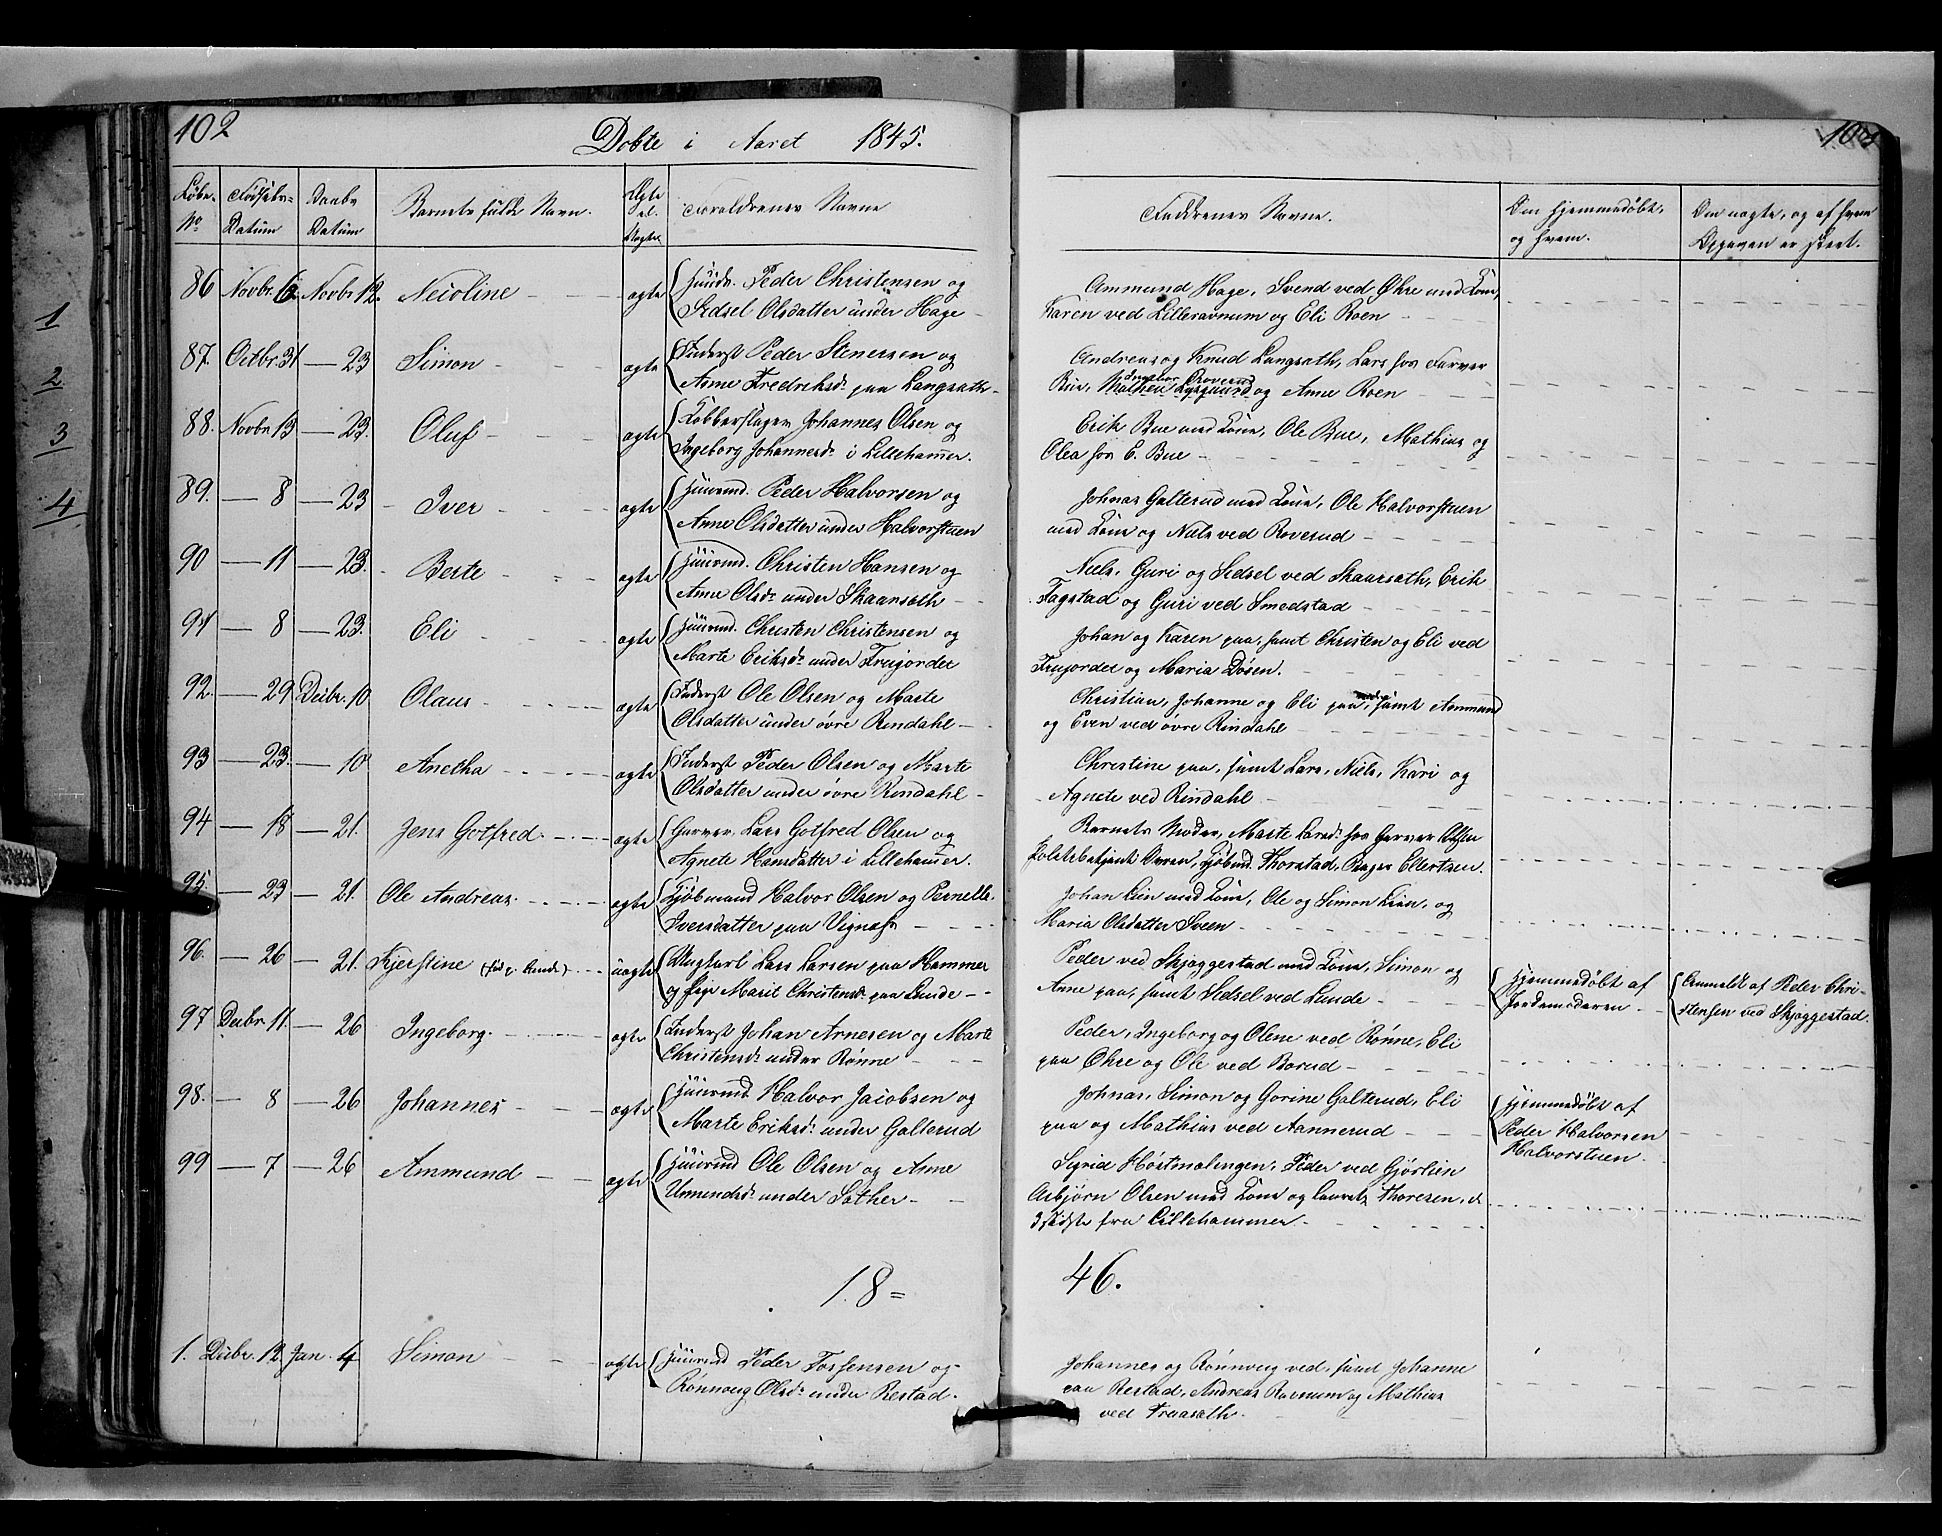 102
Døbte i Aaret 1845.
103
Løbe- No
Fødsels- Datum
Daabs Datum
Barnets fulde Navn.
Ægte el. Uægte
Forældrenes Navne
Faddrenes Navne.
Om hjemmedøbt, og hvem.
Om uægte, og af hvem Opgaven er skeet.
1
2
3
4
86 Novbr. 6 Novbr 12. Neioline ægte Huusm. Peder Christensen og
Sidsel Olsdatter under Hage
Ammund Hage, Svend ved Øhre med Kone,
Karen ved Lilleravnum og Eli Roen
87. Octbr. 31 — 23 Simon ægte Inderst Peder Stenersen og
Anne Fredriksdr paa Langsæth
Andreas og Knud Langsæth, Lars hos Farver
Bue, Ingebor Roverud og Anne Roen
88. Novbr 13 — 23. Oluf ægte Kobberslager Johannes Olsen og
Ingeborg Johannesdr i Lillehamer.
Erik Bue med Kone, Ole Bue, Mathias og
Olea hos E. Bue
89. — 8 — 23 Iver ægte Huusmd. Peder Halvorsen og
Anne Olsdatter under Halvorstuen
Johnas Galterud med Kone, Ole Halvorstuen
med Kone og Niels ved Roverud
90 — 11 — 23. Berte ægte Huusmd. Christen Hansen og
Anne Olsdr under Skaarsæth
Niels, Guri og Sidsel ved Skaarsæth, Erik
Fagstad og Guri ved Smedstad
91 — 8 — 23. Eli ægte Huusmd. Christen Christensen og
Marte Eriksdr under Frugordet
Johan og Karen paa, samt Christen og Eli ved
Frugordet og Maria Døsen.
92. — 29 Decbr. 10 Olaus ægte Inderst Ole Olsen og Marte
Olsdatter under øvre Rindahl
Christian, Johanne og Eli paa, samt Ammund
og Even ved øvre Rindahl
93 — 23. — 10 Anetha ægte Inderst Peder Olsen og Marte
Olsdatter under øvre Rindahl
Christine paa, samt Lars, Niels, Kari og
Agnete ved Rindahl
94 — 18 — 21. Jens Gotfred ægte Garver Lars Gotfred Olsen og
Agnete Hansdatter i Lillehamer.
Barnets Moder, Marte Larsdr hos Garver Olsen
Politibetjent Uren, Kjøbmd. Thorstad, Bager Ellertsen.
95. — 23 — 21. Ole Andreas. ægte Kjøbmand Halvor Olsen og Pernelle
Iversdatter paa Vignæs
Johan Lien med Kone, Ole og Simon Lien, og
Maria Olsdatter Sveen
96. — 26 — 21. Kjerstine (fød p. Lunde) uægte Ungkarl Lars Larsen paa Hammer
og Pige Marit Christensdr paa Lunde
Peder ved Skjæggestad med Kone, Simon og
Anne paa, samt Sidsel ved Lunde
Hjemmedøbt af
Jordemoderen
Anmeldt af Peder Chri-
stensen ved Skjæggestad.
97 Decbr 11. — 26 Ingeborg. ægte Inderst Johan Arnesen og Marte
Christensdr under Rønne
Peder, Ingeborg og Olene ved Rønne, Eli
paa Øhre og Ole ved Borud
98. — 8 — 26 Johannes ægte Huusmd Halvor Jacobsen og
Marte Eriksdr under Galterud
Johnas, Simon og Gorine Galterud, Eli
paa og Mathias ved Aannerud
Hjemmedøbt af
Peder Halvorsen
Halvorstuen.
99 — 7 — 26 Ammund ægte Huusmd Ole Olsen og Anne
Ummundsdr under Sæther
Sigrid Høstmælingen, Peder ved Gjørlien
Asbjørn Olsen med Kone og Lauretz Thoresen, d
3 sidste fra Lillehammer
18 =
46.
1. Decbr. 12 Jan. 4 Simon ægte Huusmd Peder Torstensen og
Rønnoug Olsdr under Restad.
Johannes og Rønnoug ved, samt Johanne
paa Restad, Andreas Ravnum og Mathias
ved Fruasæth.